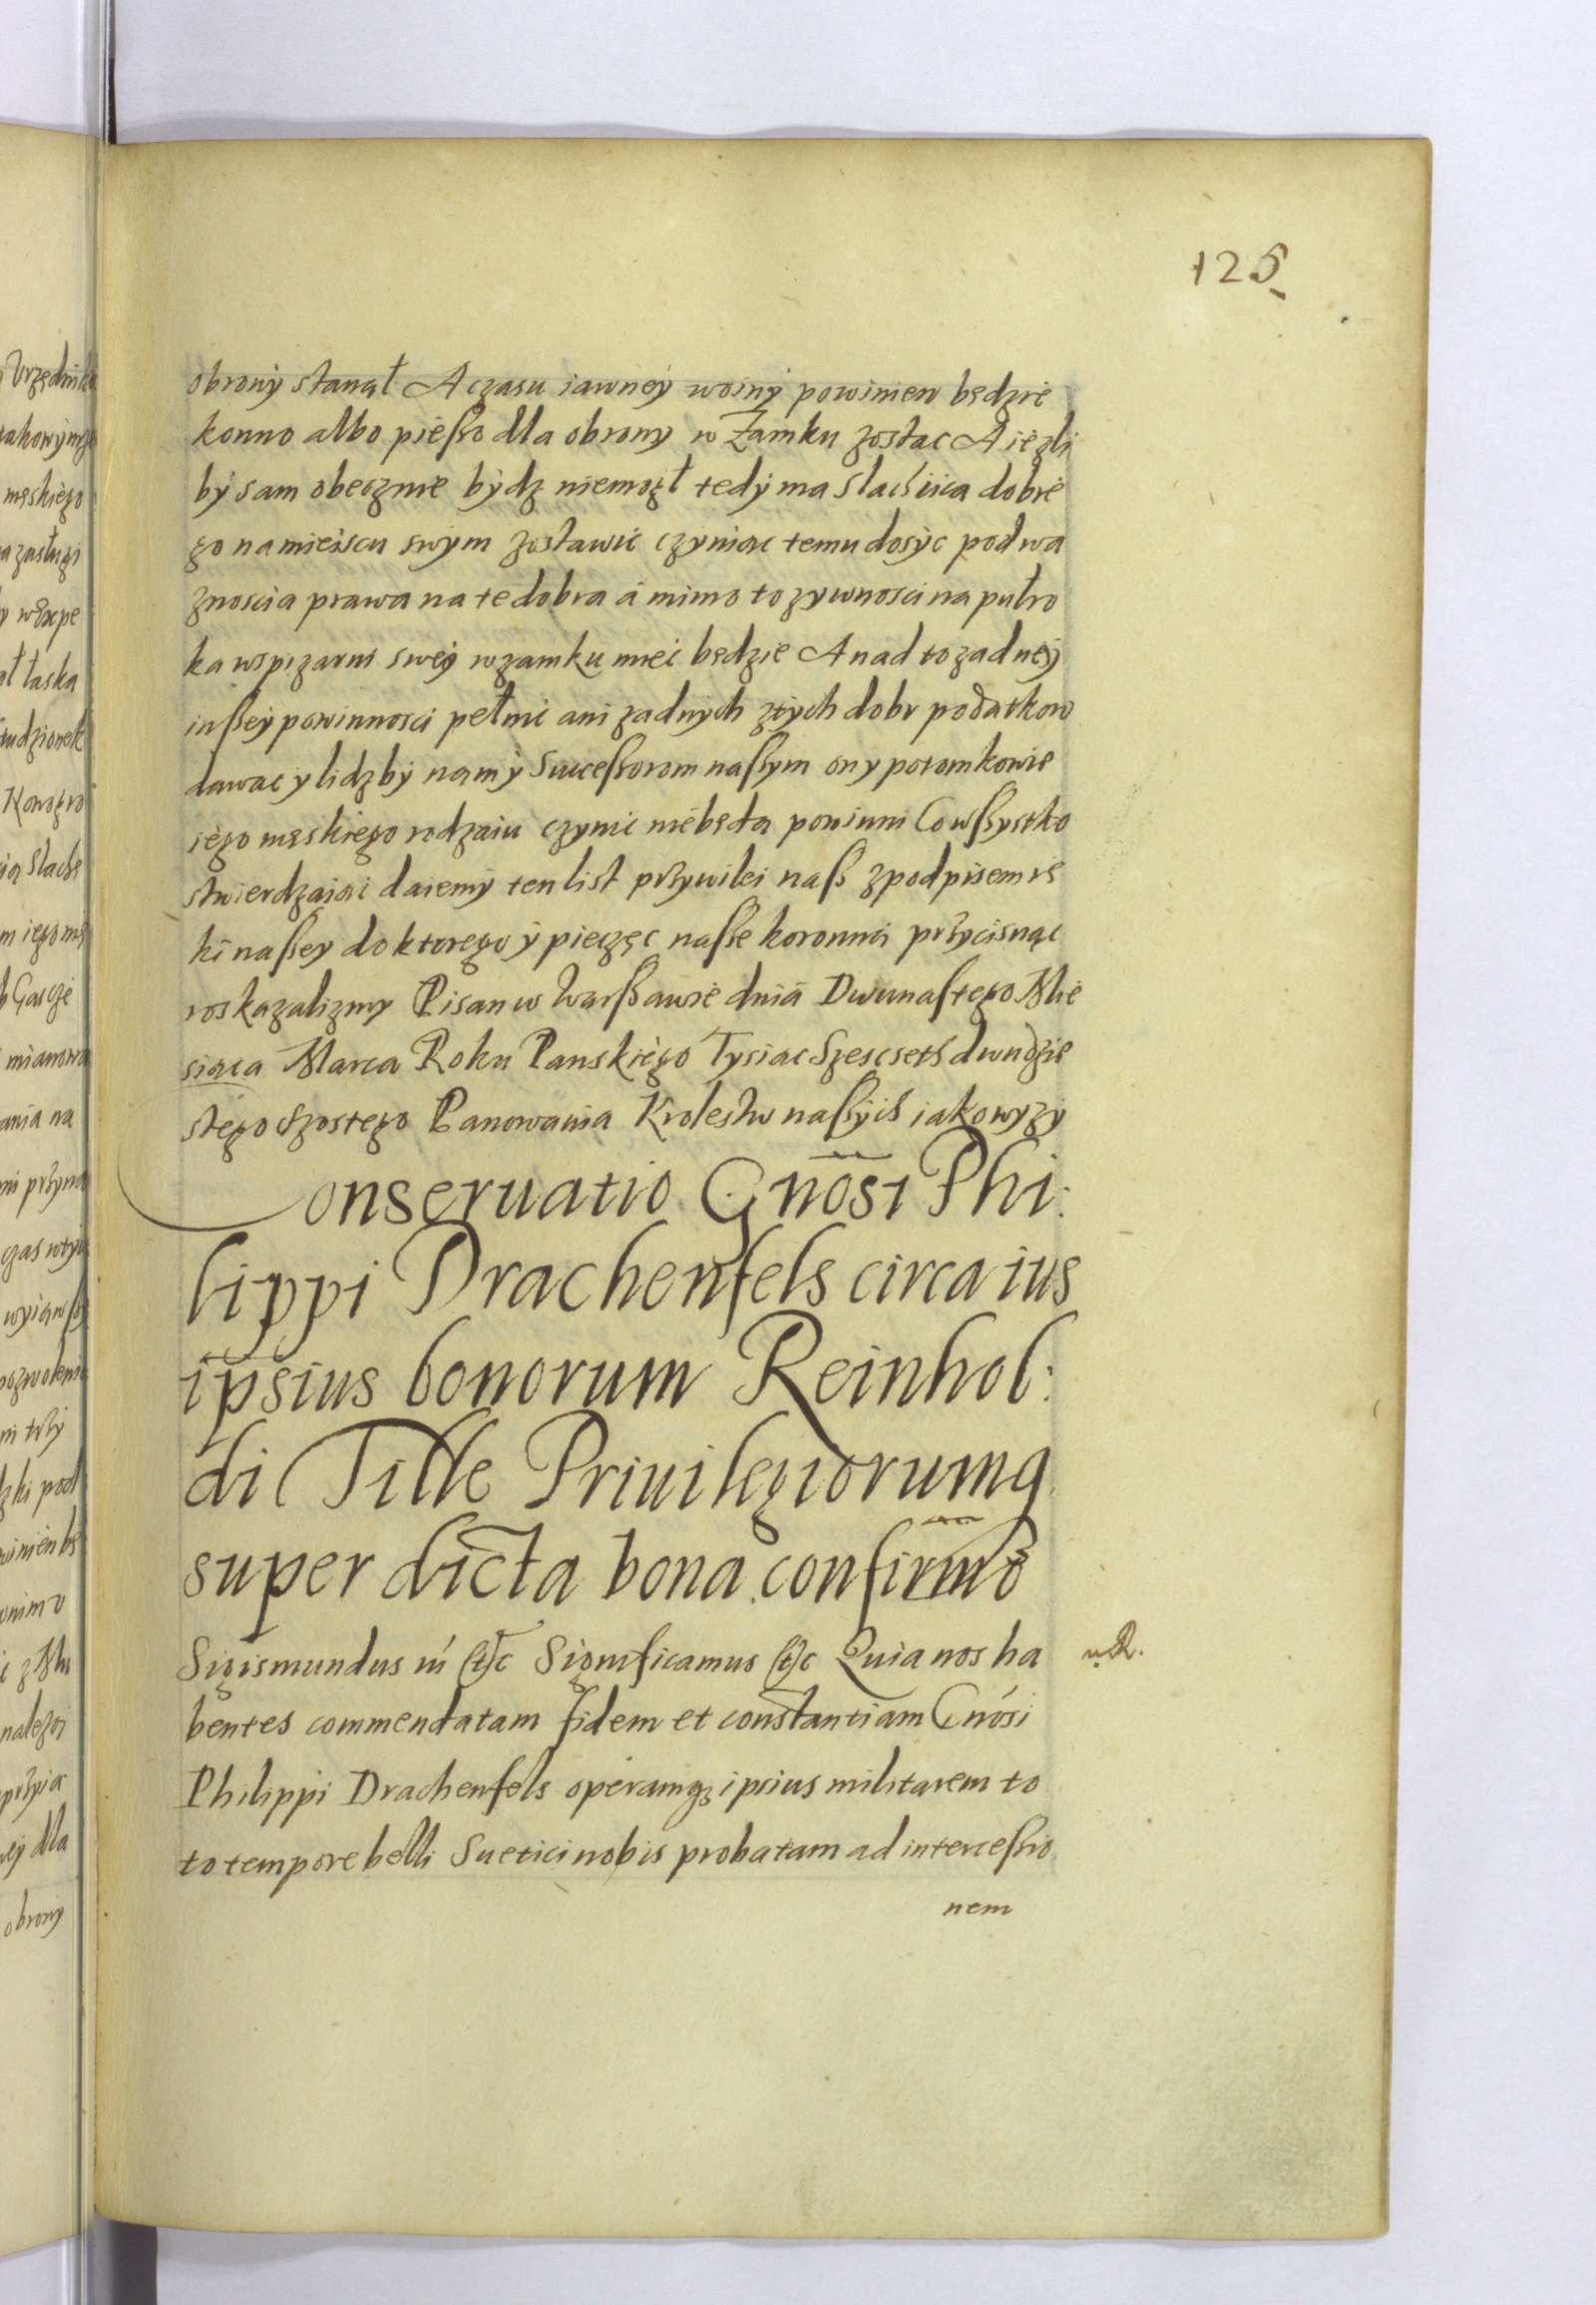 125
obrony stanął A czasu iawney woiny powinien będzie
konno albo pießo dla obrony w Zamku zostac A iezli
by sam obecznie bydz niemogł tedy ma Slachcica dobre
go na mieiscu swym zostawic czyniąc temu dosyc pod wa
znoscia prawa na te dobra a mimo to zywnosci na pułro
ka w spizarni swey w zamku miec będzie A nad to zadney
inßey powinnosci pełnic ani zadnych z tych dobr podatkow
dawac y lidzby nam y Succeßorom naßym on y potomkowie
iego męskiego rodzaiu czynic niebęda powinni Co wßystko
stwierdzaiąc daiemy ten list przywilei naß z podpisem rę
ki naßey do ktorego y pieczęc naße koronną przycisnąc
roskazalizmy Pisan w Warßawie dnia Dwunastego Mie
siąca Marca Roku Panskiego Tysiac Szescseth dwudzie
stego szostego Panowania Krolestw naßych iako wyzy
Conseruatio Gnosi Phi:
lippi Drachenfels circa ius
ipsius bonorum Reinhol:
di Tille Priuilegiorumq
super dicta bona confirmo
Sigismundus III etc Significamus etc Quia nos ha
bentes commendatam fidem et constantiam Gnosi
Philippi Drachenfels operamq ipsius militarem to
to tempore belli Suetici nobis probatam ad interceßio
nem